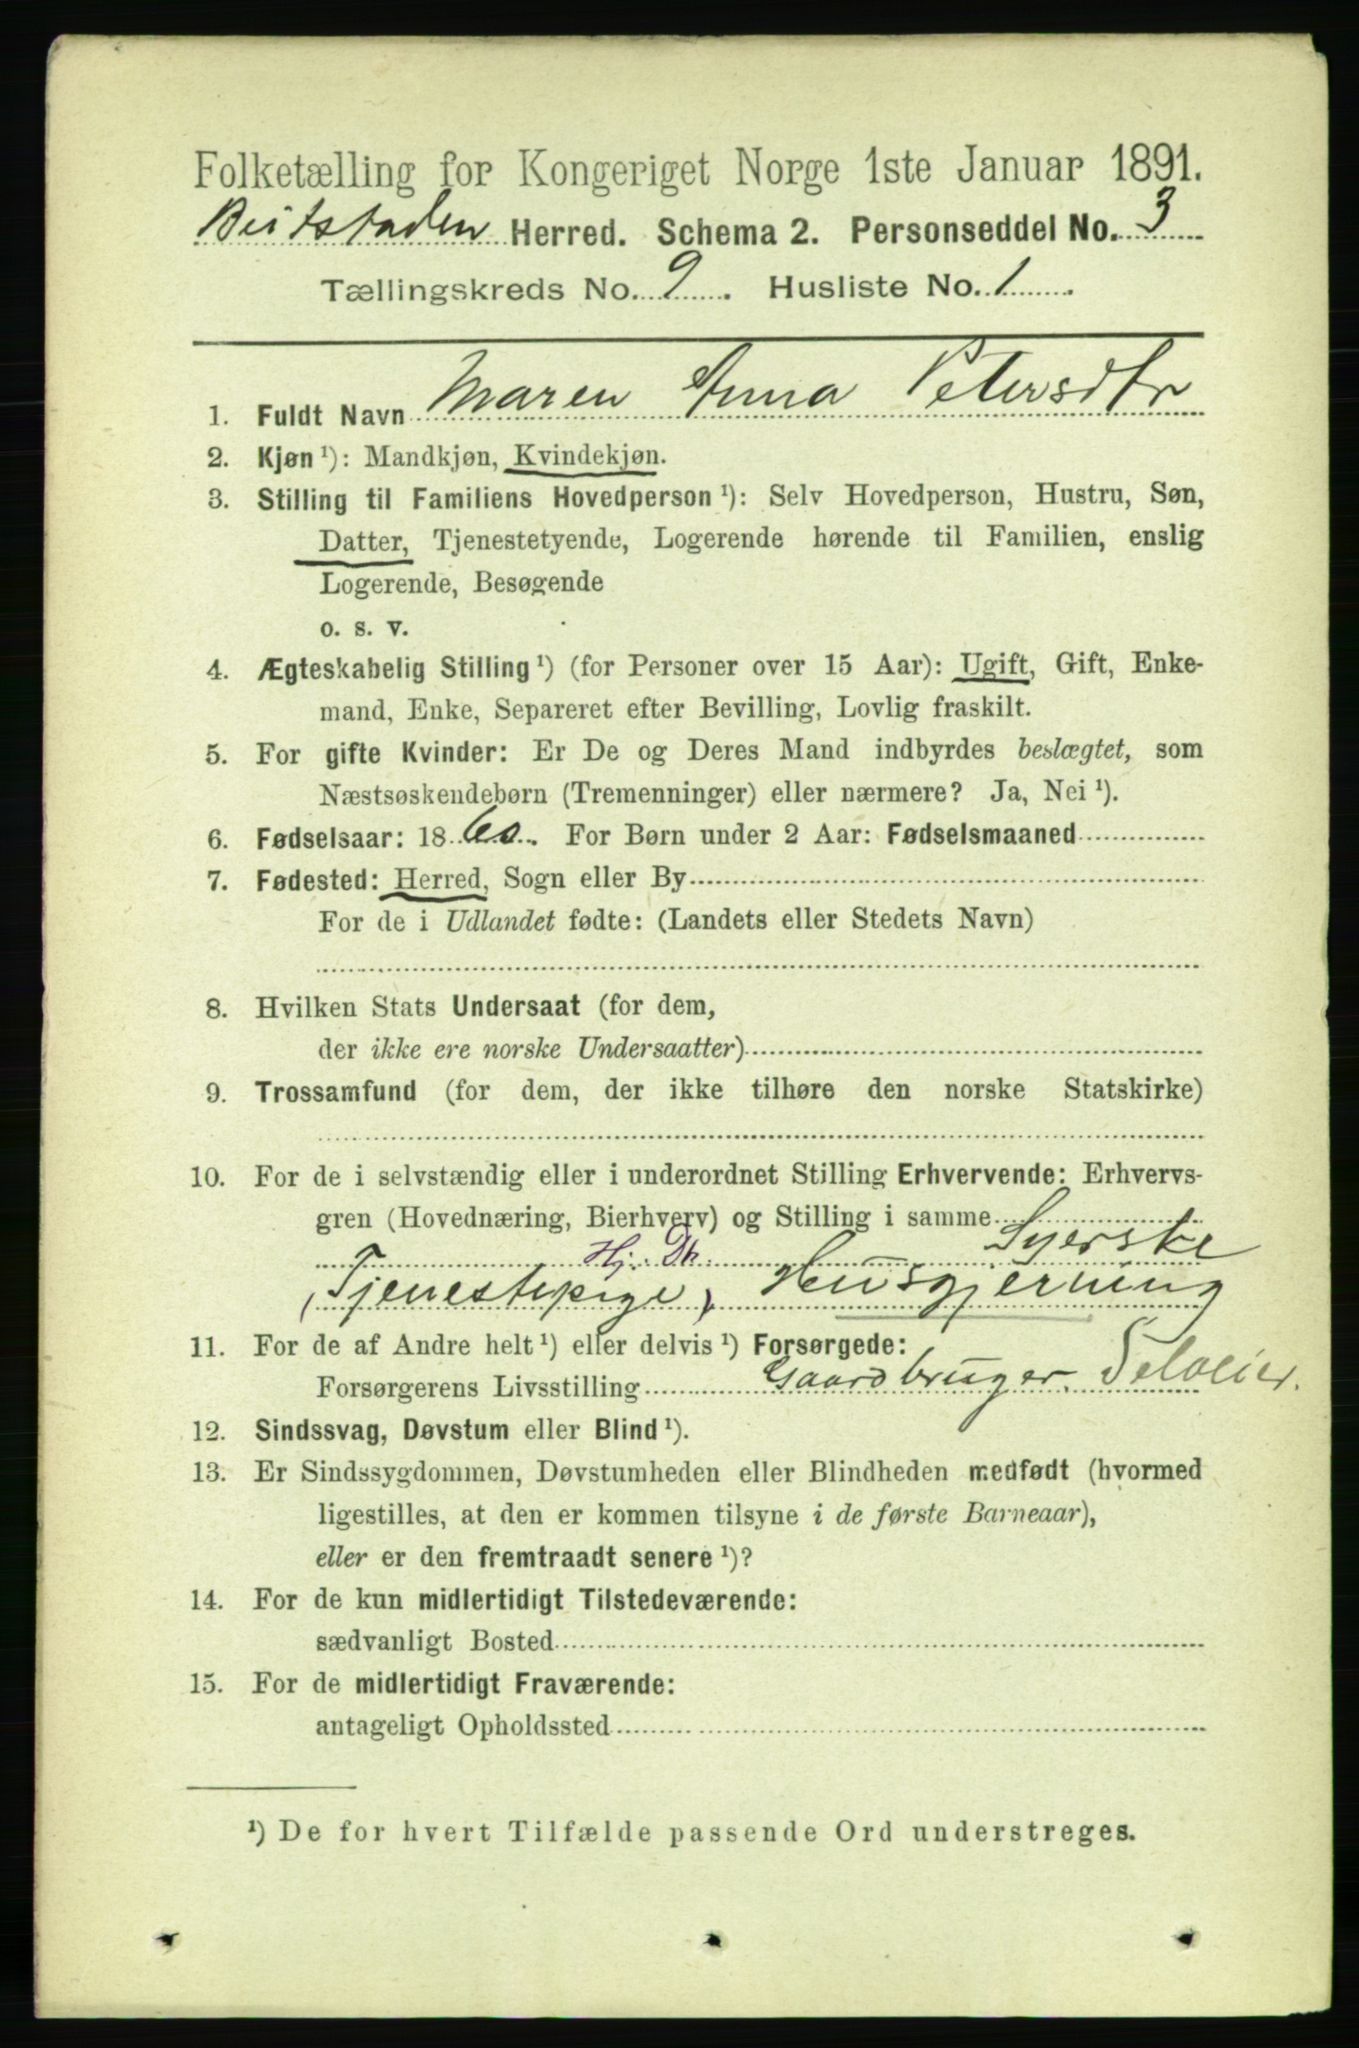 Folketælling for Kongeriget Norge 1ste Januar 1891.
Beitstaden Herred. Schema 2. Personseddel No. 3
Tællingskreds No. 9. Husliste No. 1.
1. Fuldt Navn Maren Anna Petersdtr
2. Kjøn ¹): Mandkjøn, Kvindekjøn.
3. Stilling til Familiens Hovedperson ¹): Selv Hovedperson, Hustru, Søn,
Datter, Tjenestetyende, Logerende hørende til Familien, enslig
Logerende, Besøgende
o. s. v.
4. Ægteskabelig Stilling ¹) (for Personer over 15 Aar): Ugift, Gift, Enke-
mand, Enke, Separeret efter Bevilling, Lovlig fraskilt.
5. For gifte Kvinder: Er De og Deres Mand indbyrdes beslægtet, som
Næstsøskendebørn (Tremenninger) eller nærmere? Ja, Nei ¹).
6. Fødselsaar: 1860. For Børn under 2 Aar: Fødselsmaaned
7. Fødested: Herred, Sogn eller By
For de i Udlandet fødte: (Landets eller Stedets Navn)
8. Hvilken Stats Undersaat (for dem,
der ikke ere norske Undersaatter)
9. Trossamfund (for dem, der ikke tilhøre den norske Statskirke)
10. For de i selvstændig eller i underordnet Stilling Erhvervende: Erhvervs-
gren (Hovednæring, Bierhverv) og Stilling i samme
Hj. Dtr. Syerske
(Tjenestepige), Husgjerning
11. For de af Andre helt ¹) eller delvis ¹) Forsørgede:
Forsørgerens Livsstilling Gaardbruger. Selveier.
12. Sindssvag, Døvstum eller Blind ¹).
13. Er Sindssygdommen, Døvstumheden eller Blindheden medfødt (hvormed
ligestilles, at den er kommen tilsyne i de første Barneaar),
eller er den fremtraadt senere ¹)?
14. For de kun midlertidigt Tilstedeværende:
sædvanligt Bosted
15. For de midlertidigt Fraværende:
antageligt Opholdssted
¹) De for hvert Tilfælde passende Ord understreges.